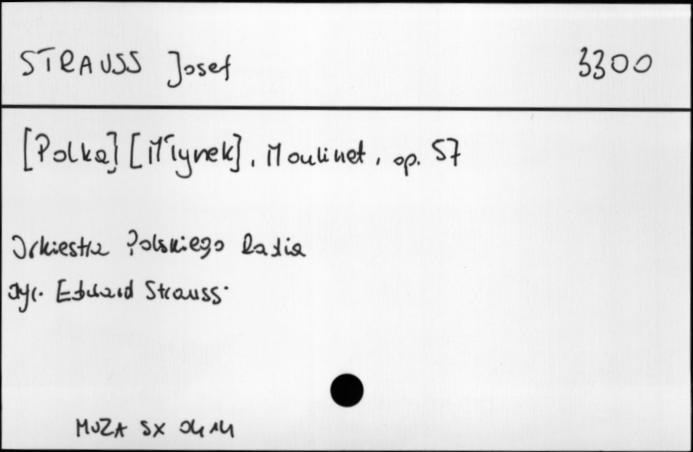 STRAUSS Josef 3300
[Polka] [Młynek], Moulinet, op. 57
Orkiestra Polskiego Radia
dyr. Edward Strauss
MUZA SX 0414